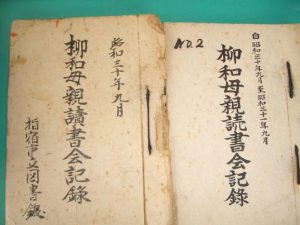 昭和三十年九月
柳和母親讀書会記録
指宿市立図書館
No.2
自昭和三十年九月至昭和三十一年九月
柳和母親読書会記録